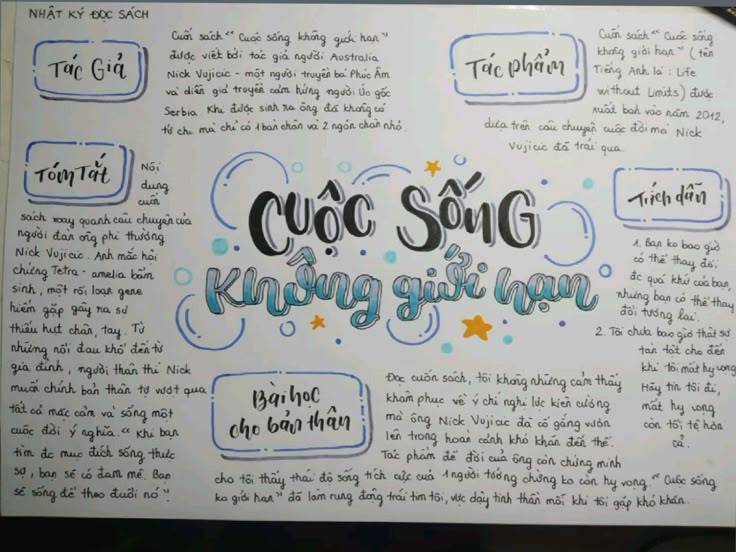 NHẬT KÝ ĐỌC SÁCH
Tác Giả
Cuốn sách "Cuộc sống không giới hạn"
được viết bởi tác giả người Australia
Nick Vujicic - một người truyền bá Phúc Âm
và diễn giả truyền cảm hứng người Úc gốc
Serbia. Khi được sinh ra ông đã không có
tứ chi mà chỉ có 1 bàn chân và 2 ngón chân nhỏ.
Tác phẩm
Cuốn sách "Cuộc sống
không giới hạn" (tên
Tiếng Anh là: Life
without Limits) được
xuất bản vào năm 2012,
dựa trên câu chuyện cuộc đời mà Nick
Vujicic đã trải qua.
Tóm Tắt
Nội
dung
cuốn
sách xoay quanh câu chuyện của
người đàn ông phi thường
Nick Vujicic. Anh mắc hội
chứng Tetra-amelia bẩm
sinh, một rối loạn gene
hiếm gặp gây ra sự
thiếu hụt chân, tay. Từ
những nỗi đau khổ đến từ
gia đình, người thân thì Nick
muốn chính bản thân tự vượt qua
tất cả mặc cảm và sống một
cuộc đời ý nghĩa. "Khi bạn
tìm đc mục đích sống thực
sự, bạn sẽ có đam mê. Bạn
sẽ sống để theo đuổi nó"
CUỘC SỐNG
không giới hạn
Trích dẫn
1. Bạn ko bao giờ
có thể thay đổi
đc quá khứ của bạn,
nhưng bạn có thể thay
đổi tương lai.
2. Tôi chưa bao giờ thật sự
tàn tật cho đến
khi tôi mất hy vọng.
Hãy tin tôi đi,
mất hy vọng
còn tồi tệ hơn
cả.
Bài học
cho bản thân
Đọc cuốn sách, tôi không những cảm thấy
khâm phục về ý chí nghị lực kiên cường
mà ông Nick Vujicic đã cố gắng vươn
lên trong hoàn cảnh khó khăn đến thế.
Tác phẩm để đời của ông còn chứng minh
cho tôi thấy thái độ sống tích cực của 1 người tưởng chừng ko còn hy vọng. "Cuộc sống
ko giới hạn" đã làm rung động trái tim tôi, vực dậy tinh thần mỗi khi tôi gặp khó khăn.